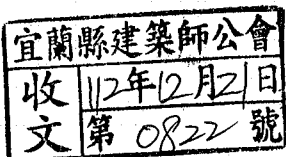 宜蘭縣建築師公會
收文
112年12月21日
第0822號